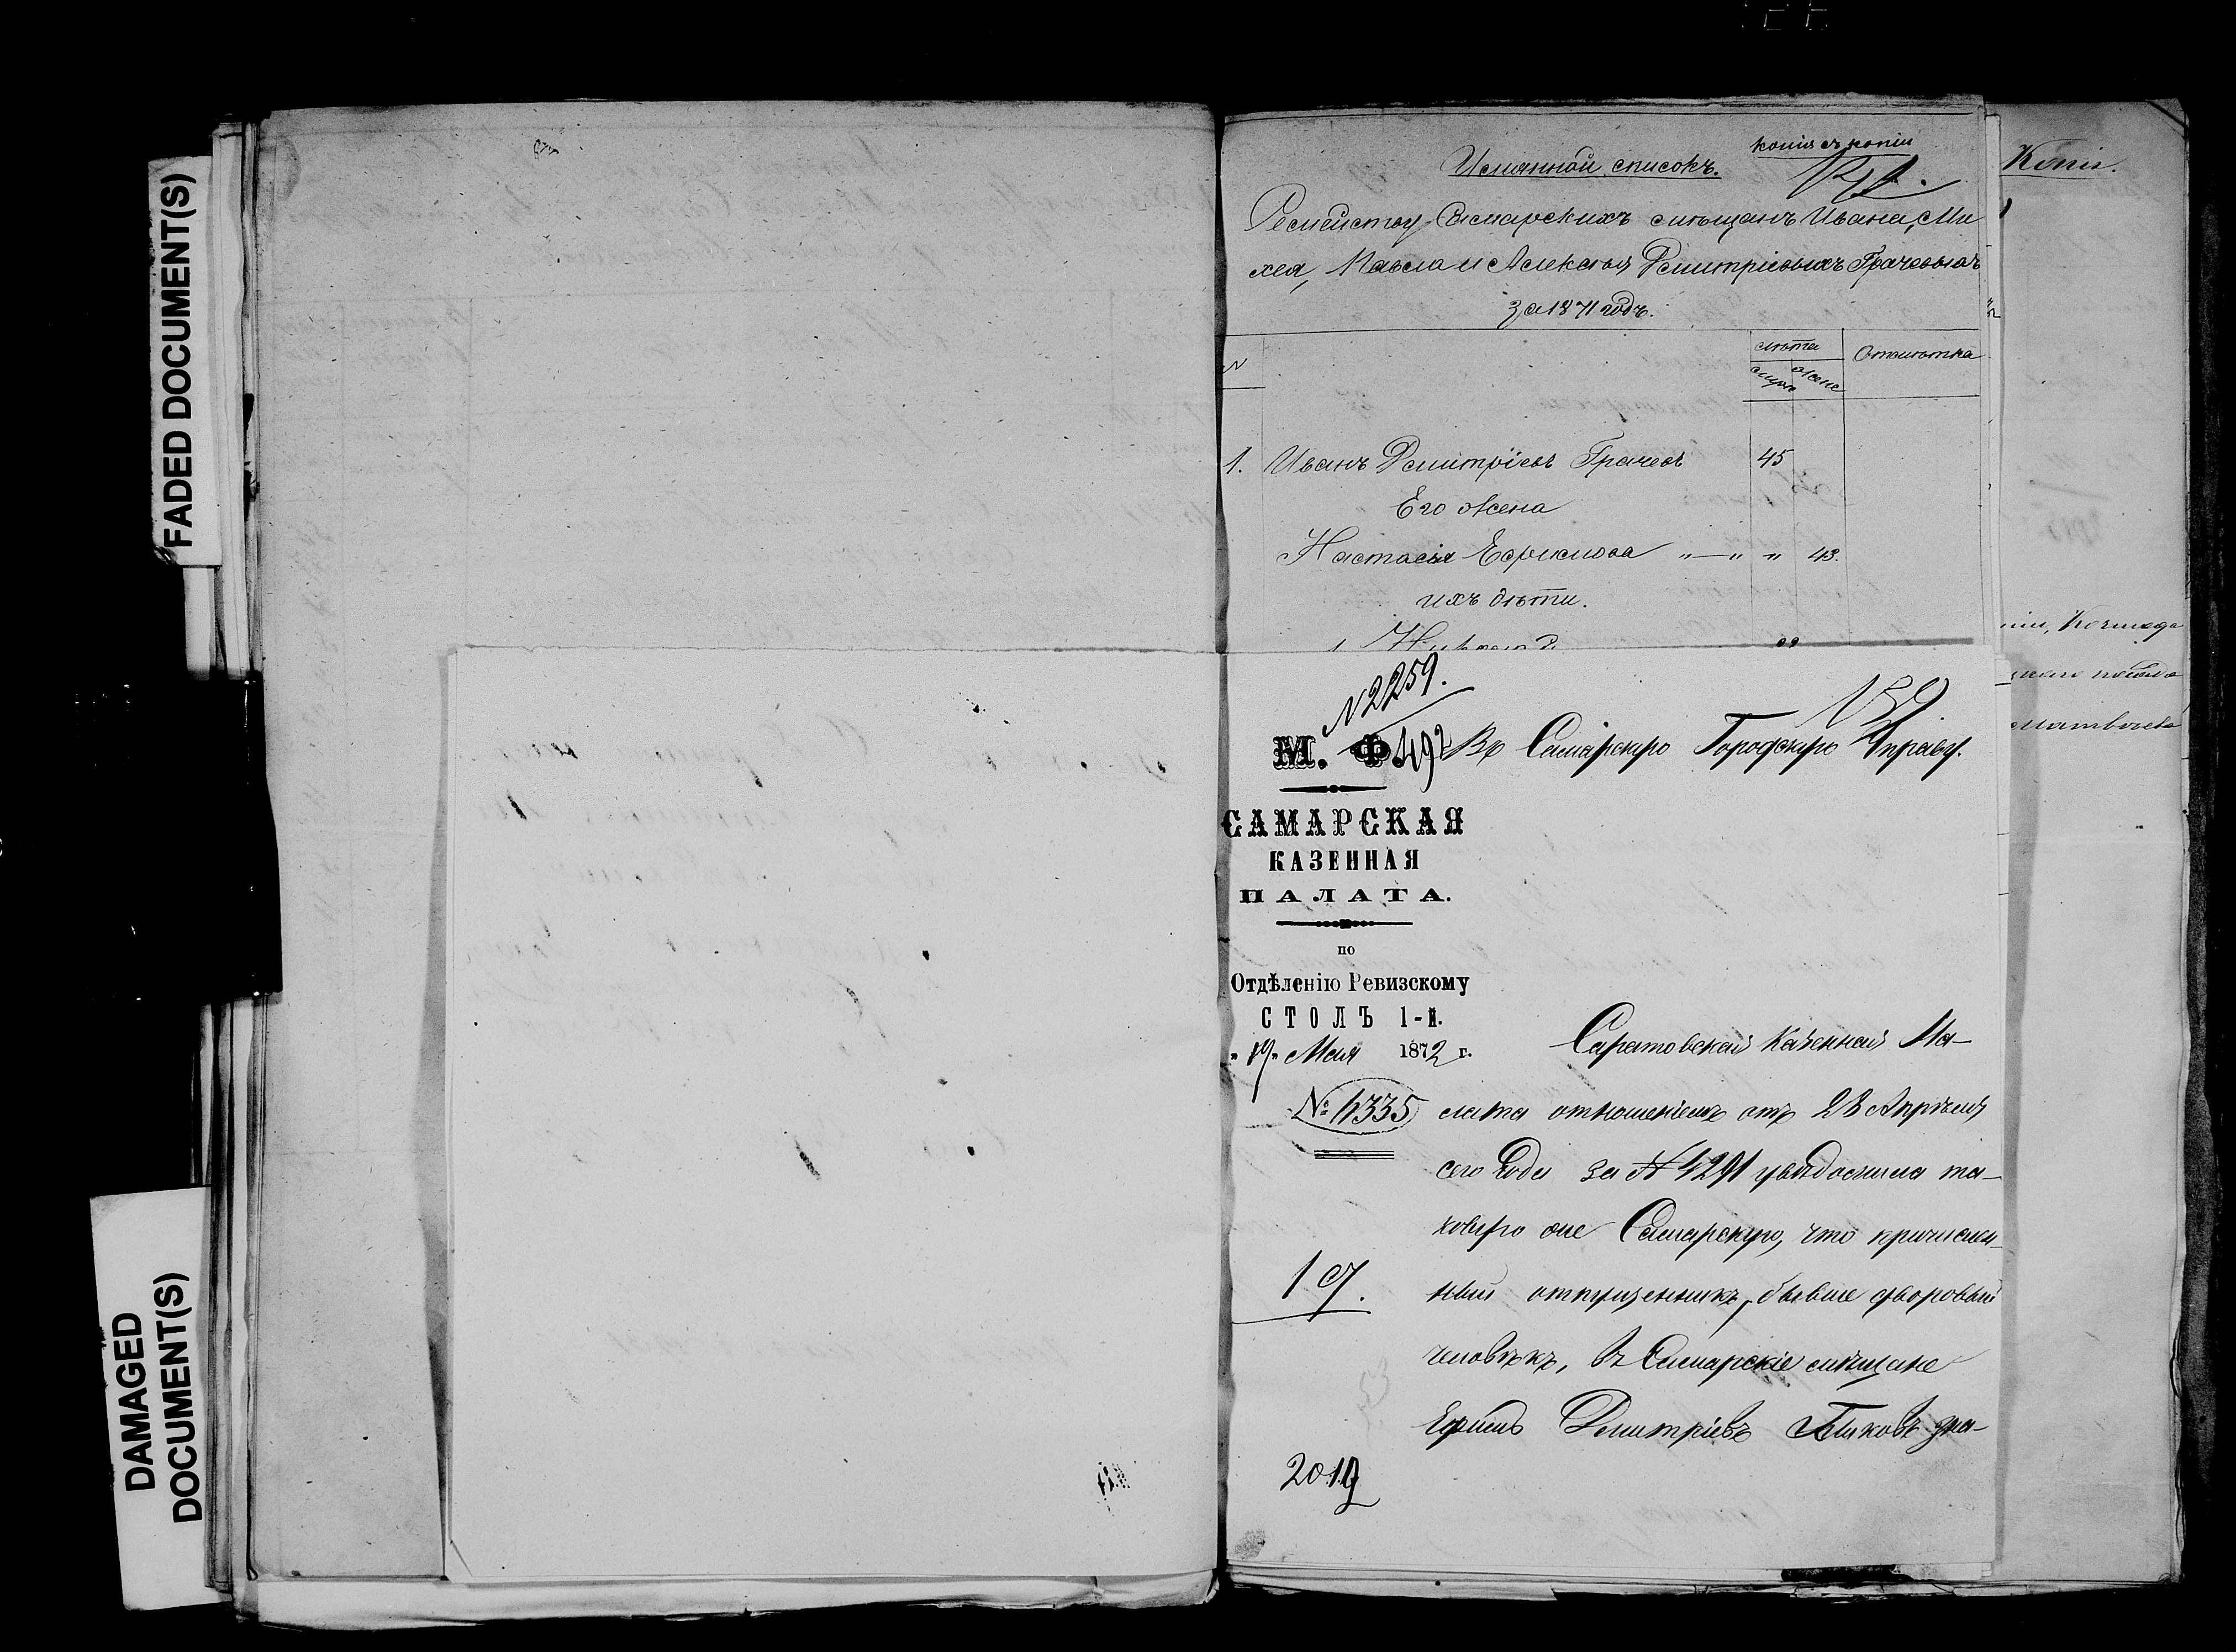 FADED DOCUMENT(S)
DAMAGED
DOCUMENT(S)
копія съ копіи
Именной списокъ.
Семейству Самарскихъ мѣщанъ Ивана, Ми
хея, Павла и Алексѣя Дмитріевыхъ Грачевыхъ
за 1871 годъ.
N
лѣта
муж
женс
Отмѣтка
1. Иванъ Дмитріевъ Грачевъ 45
Его жена
Настасья Ефимова „—„ „ 43.
ихъ дѣти.
Копія.
N 2259.
М. Ф. 492
Въ Самарскую Городскую Управу.
САМАРСКАЯ
КАЗЕННАЯ
ПАЛАТА.
по
Отдѣленію Ревизскому
СТОЛЪ 1-й.
„19„ Мая 1872 г.
№ 4335
Саратовская Казенная Па-
лата отношеніемъ отъ 28 Апрѣля
сего Года за № 4291 увѣдомила та-
ковую же Самарскую, что причислен-
ный отпущенникъ, бывше дворовый
человѣкъ, въ Самарскіе мѣщане
Ефимъ Дмитріевъ Быковъ зна-
19.
2019